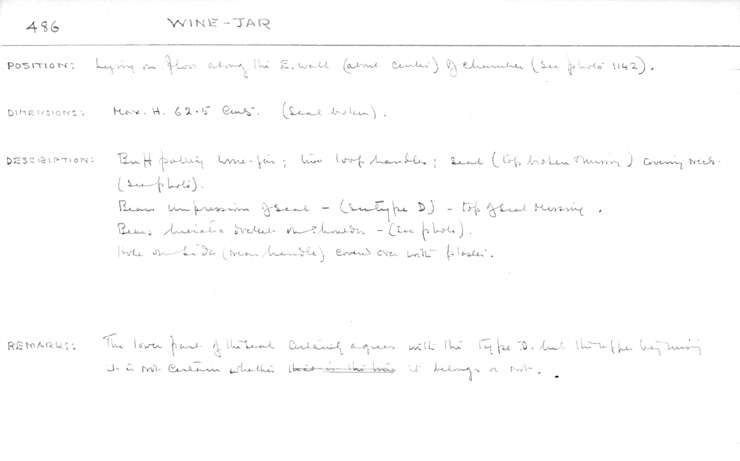 486 WINE-JAR
POSITION: Lying on floor along the E. wall (about center) of chamber (See photo 1142).
DIMENSIONS: Max. H. 62.5 Cms. (Seal broken).
DESCRIPTION: Buff pottery wine-jar; two loop handles; seal (top broken & missing) covering neck.
(See photo).
Bears impression of seal - (See type D) - top of seal missing.
Bears hieratic docket on shoulder - (See photo).
Hole on side (near handle) covered over with plaster.
REMARKS: The lower part of the seal certainly agrees with the type D. but the upper being missing
it is not certain whether it belongs or not.